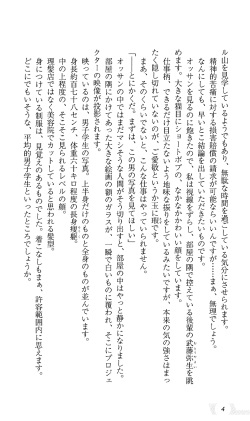 ル山を見学しているようでもあり、無駄な時間を過ごしている気分にさせられます。
精神的苦痛に対する損害賠償の請求が可能ならいいんですが……まぁ、無理でしょう。
なんにしても、早いとこ結論を出していただきたいものです。
オッサンを見るのに飽きたので、私は視線をずらし、部屋の隅で控えている後輩の武藤弥生を眺
めます。大きな猫目にショートボブの、なかなかかわいい顔をしています。
仕事柄、できるだけ目立たないよう地味な探りをしているみたいですが、本来の気の強さはまっ
たく隠し切れていないので、愛敬というか玉に瑕です。
まあ、そのくらいでないと、こんな仕事はやってられませんが。
「――とにかくだ。まずは、この男の写真を見てほしい」
オッサンの中ではまだマシそうな人間がそう切り出すと、部屋の中はやっと静かになりました。
部屋の隅にかけてあった大きな絵画の額のガラスが、一瞬で白いものに覆われ、そこにプロジェ
クターの映像が投影されます。
映っているのは、男子学生の写真。上半身だけのものと全身のものが並んでいます。
身長約百七十八センチ、体重六十キロ程度の長身痩軀。
中の上程度の、そこそこ見られるレベルの顔。
理髪店ではなく美容院でカットしていると思われる髪型。
身につけている制服は、見覚えのあるものでした。着こなしもまぁ、許容範囲内に思えます。
どこにでもいそうな、平均的男子学生といったところでしょうか。
4